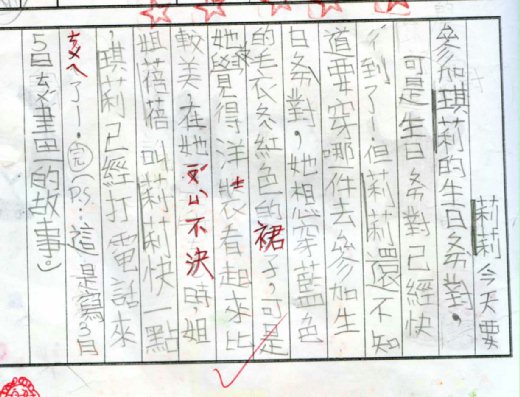 莉莉今天要
參加琪莉的生日ㄆㄞˋ對，
可是生日ㄆㄞˋ對已經快
到了！但莉莉還不知
道要穿哪一件去參加生
日ㄆㄞˋ對，她想穿藍色
的毛衣紅色的裙子，可是
她覺得洋裝看起來比
較美，在她不決時，姐
姐蓓蓓叫莉莉快一點
，琪莉已經打電話來
了！完(PS.:這是寫3月
5日畫的故事。